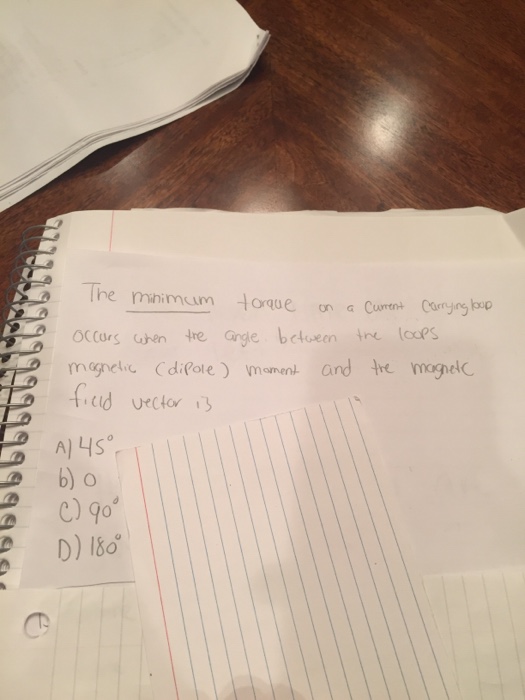 The minimum torque on a current carrying loop
occurs when the angle between the loops
magnetic (dipole) moment and the magnetc
field vector is
A) 45°
b) 0
C) 90°
D) 180°